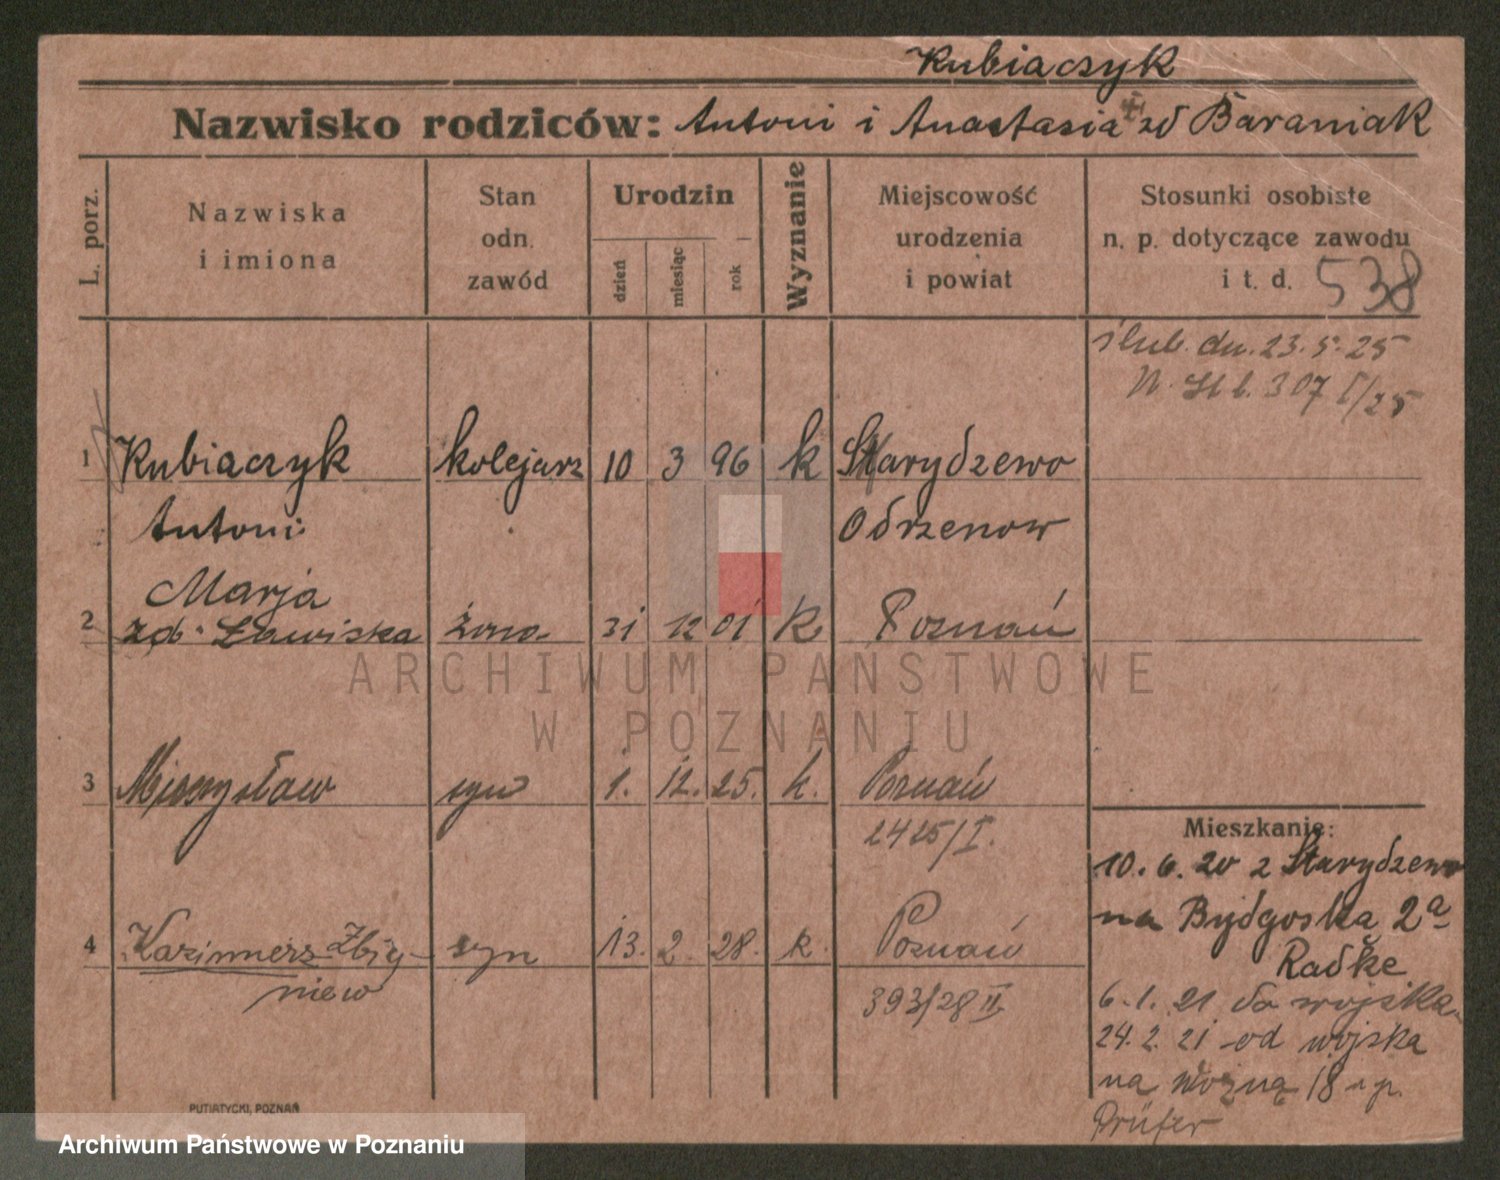 Kubiaczyk
Nazwisko rodziców: Antoni i Anastasia zd Baraniak
L. porz.
Nazwiska
i imiona
Stan
odn.
zawód
Urodzin
dzień
miesiąc
rok
Wyznanie
Miejscowość
urodzenia
i powiat
Stosunki osobiste
n. p. dotyczące zawodu
i t. d. 538
ślub. dn. 23. 5. 25
N. St b. 307 I/25
1 Kubiaczyk kolejarz 10 3 96 k Starydzewo
Antoni Obrzenow
Marja
2 zd. żona 31 12 01 k Poznań
3 Mieczysław syn 1. 12. 25. k. Poznań
2425/I.
4 Kazimierz Zbig-
niew
syn 13. 2. 28. k Poznań
393/28 II
Mieszkanie:
10. 6. 20 z Starydzewo
na Bydgoska 2a
Radke
6. 1. 21 do wojska
24. 2. 21 od wojska
na Woźną 18 p.
Prüfer
PUTIATYCKI, POZNAŃ
ARCHIWUM PAŃSTWOWE
W POZNANIU
Archiwum Państwowe w Poznaniu